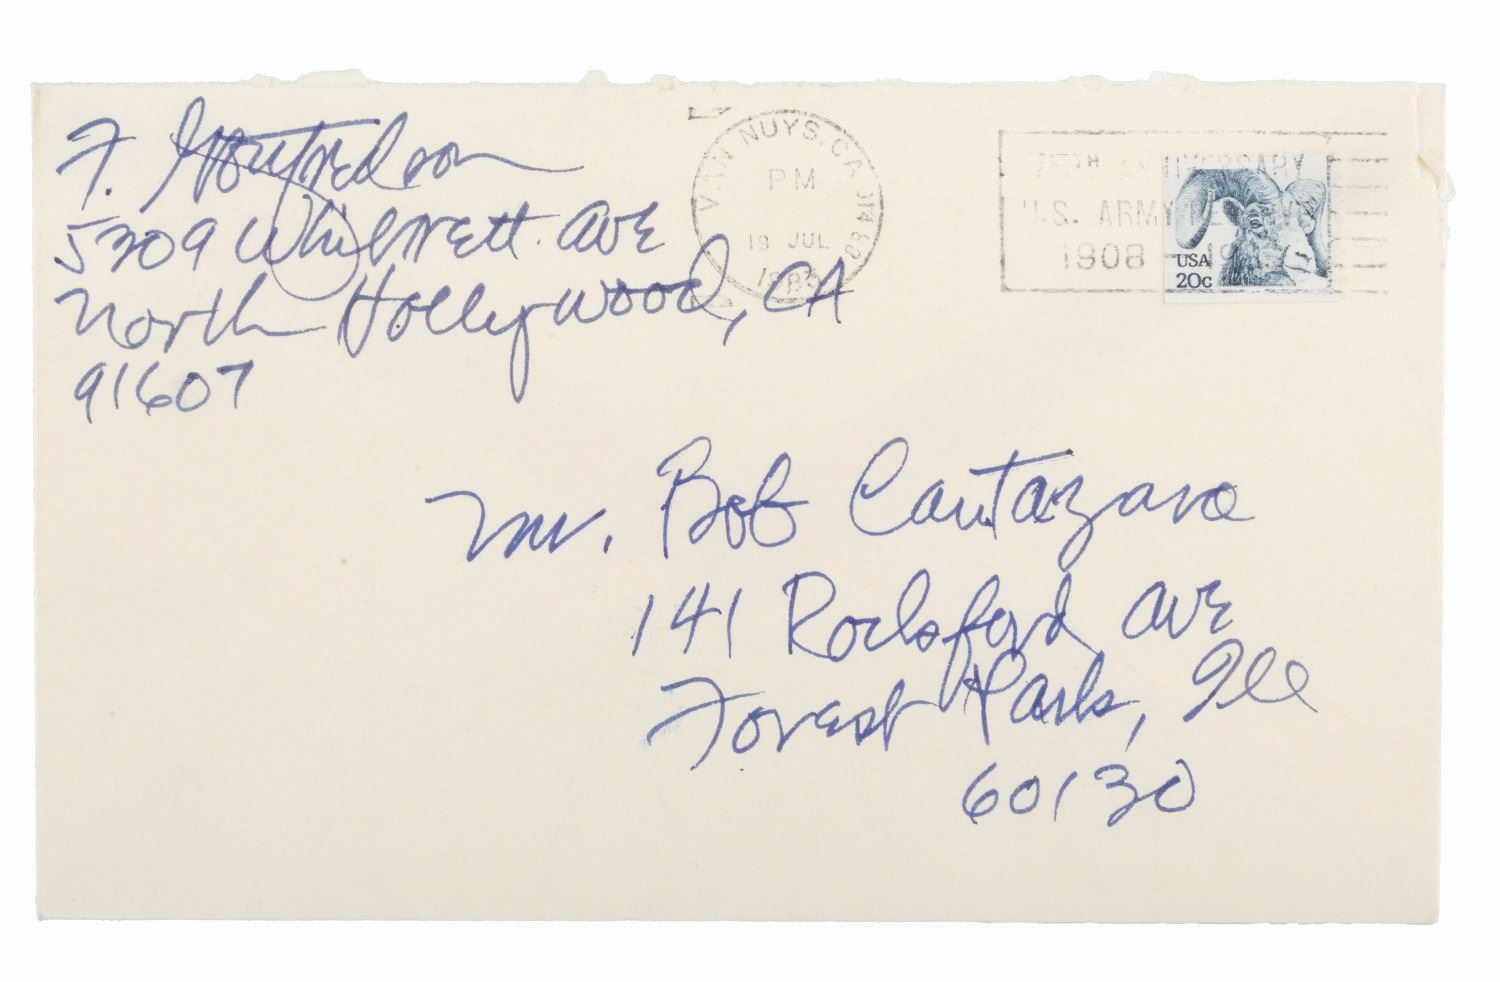 F. Gottfredson
5309 Whitsett Ave
North Hollywood, CA
91607
VAN NUYS, CA
PM
19 JUL
1983
75TH ANNIVERSARY
U.S. ARMY RESERVE
1908
USA
20c
Mr. Bob Cantazaro
141 Rocksford Ave
Forest Park, Ill
60130